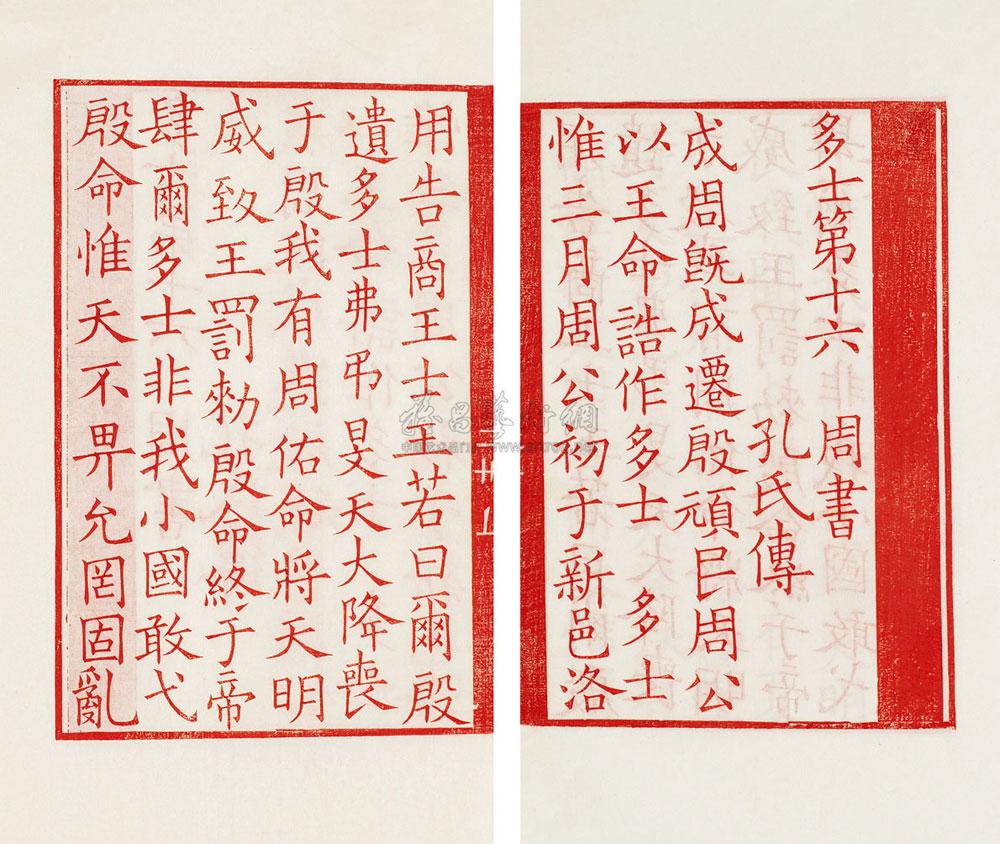 多士第十六 周書
孔氏傳
成周旣成遷殷頑民周公
以王命誥作多士 多士
惟三月周公初于新邑洛
用告商王士王若曰爾殷
遺多士弗弔旻天大降喪
于殷我有周佑命將天明
威致王罰勑殷命終于帝
肆爾多士非我小國敢弋
殷命惟天不畀允罔固亂
雅昌藝術網